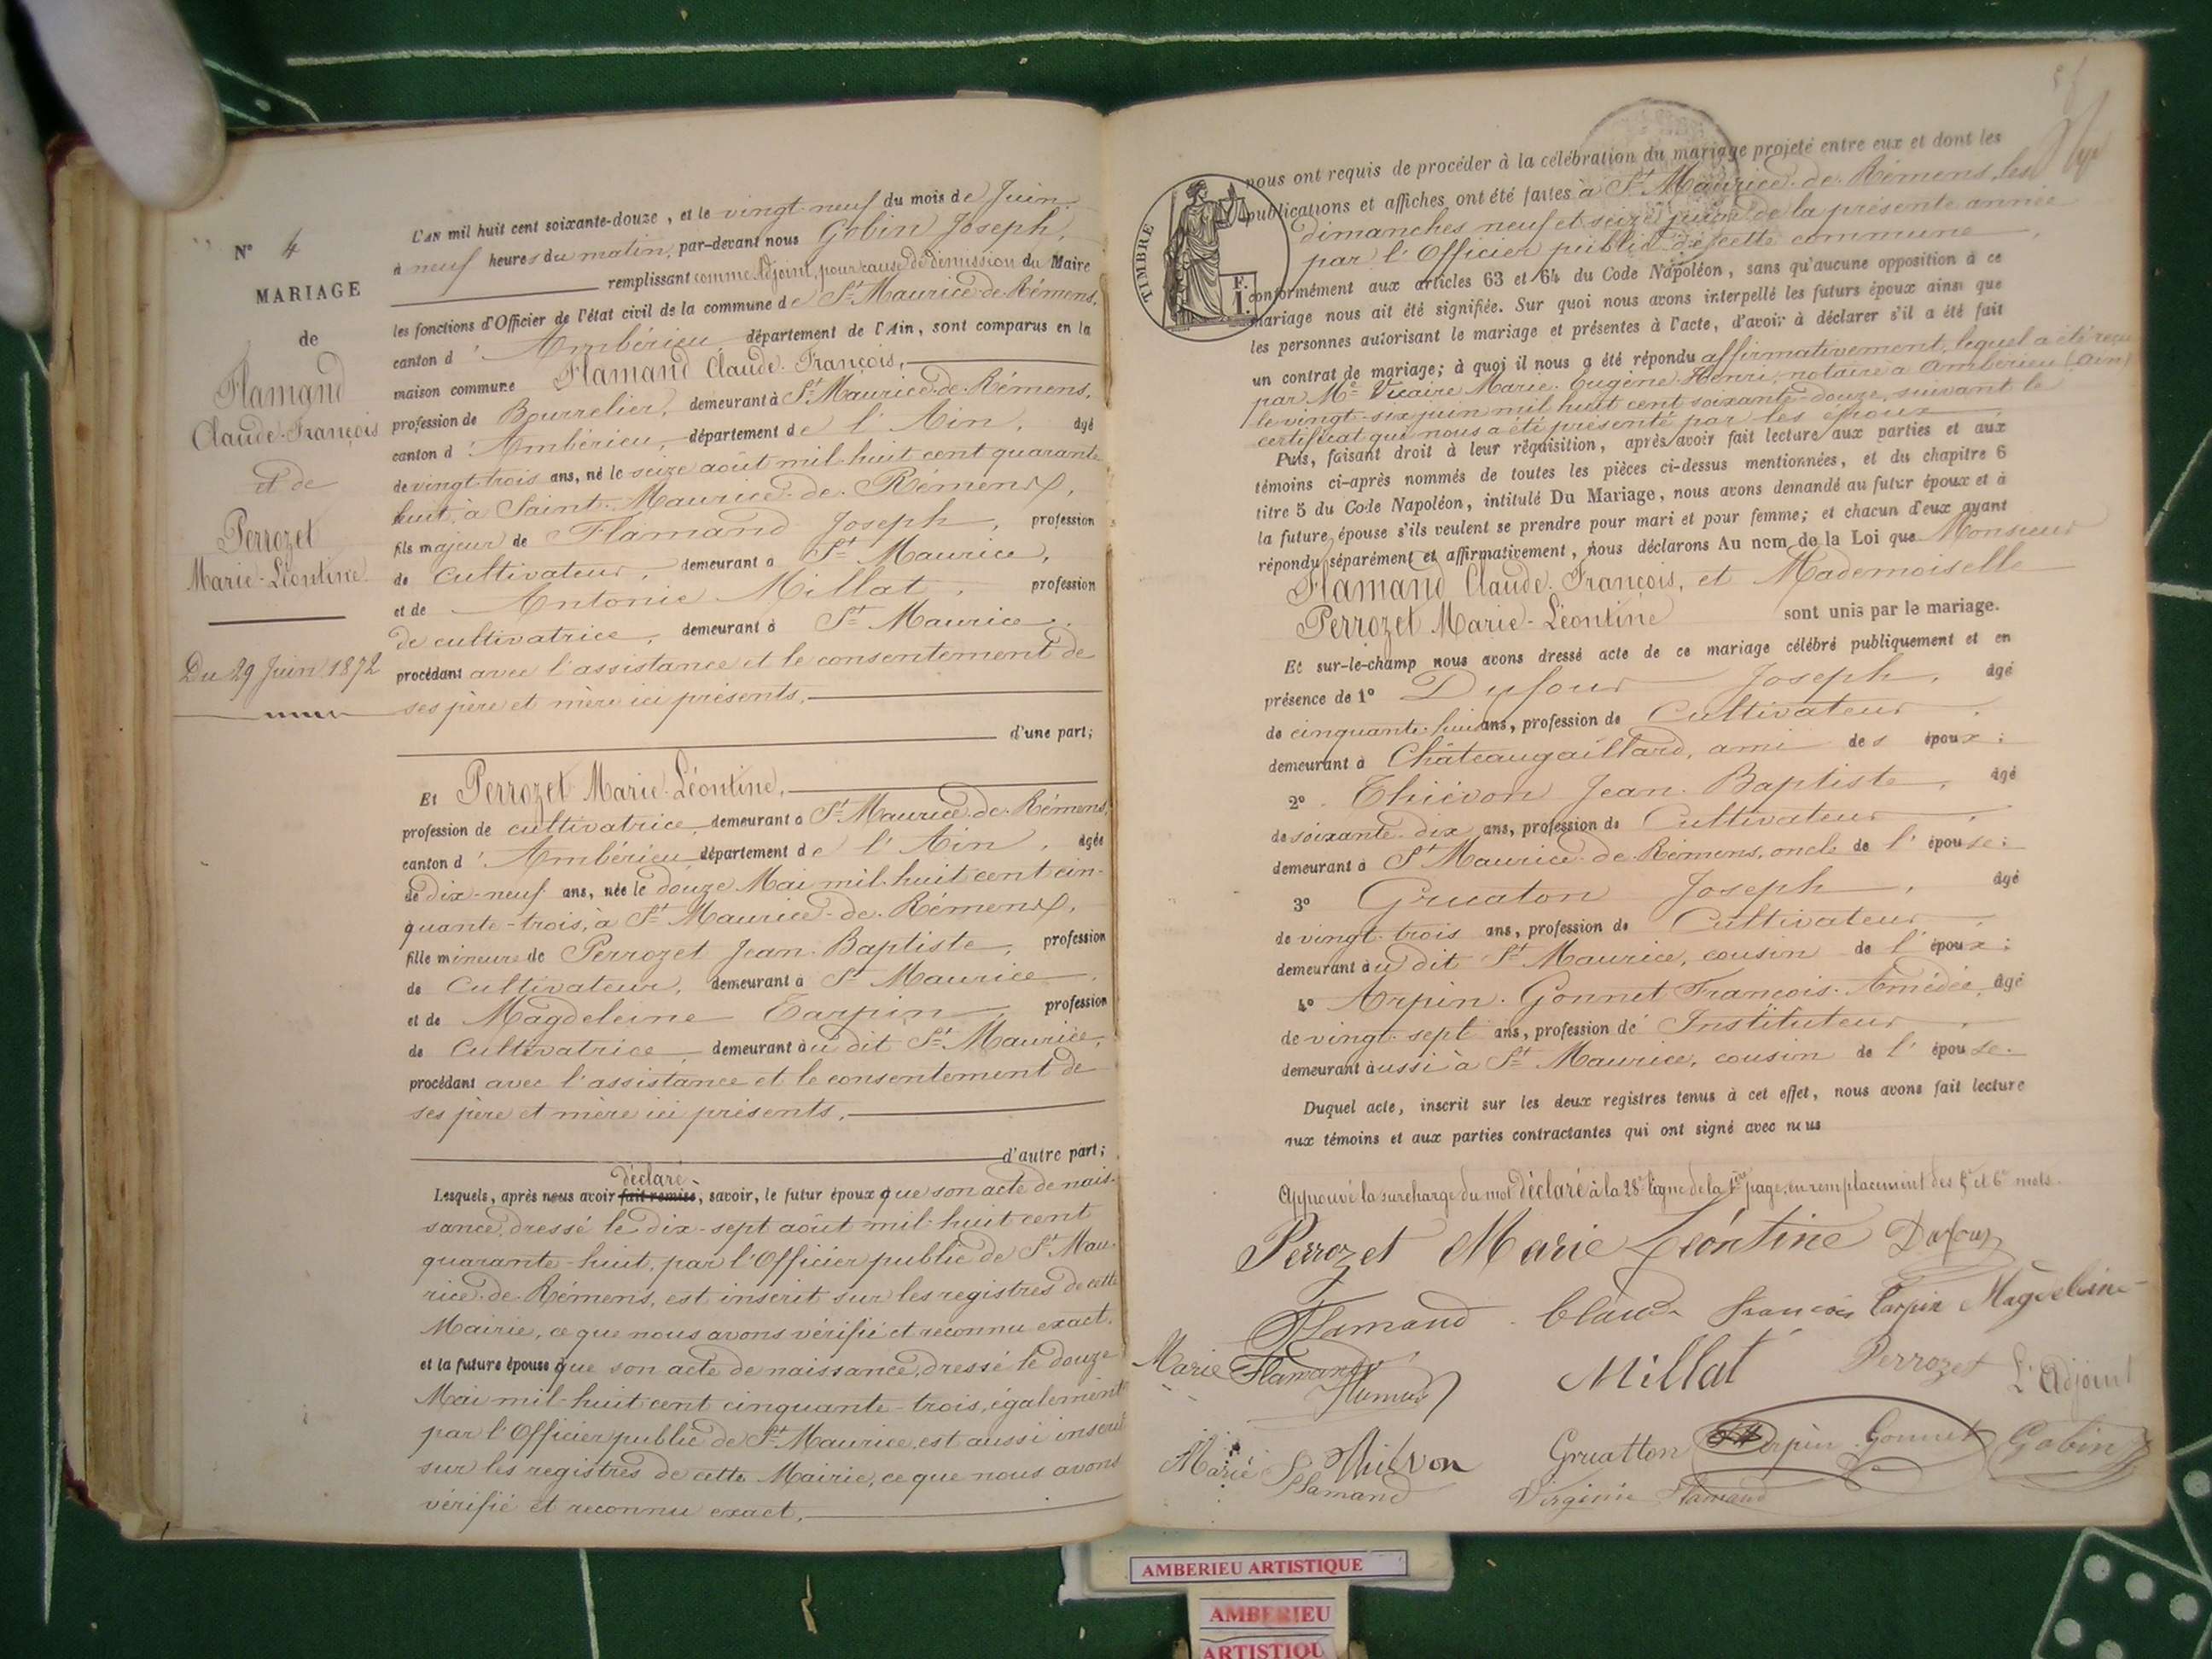 N° 4
MARIAGE
de
Flamand
Claude-François
et de
Perrozet
Marie-Léontine
Du 29 Juin 1872
L'AN mil huit cent soixante-douze, et le vingt-neuf du mois de Juin
à neuf heures du matin, par-devant nous Gobin Joseph,
remplissant comme Adjoint, pour cause de démission du Maire
les fonctions d'Officier de l'état civil de la commune de St Maurice-de-Rémens,
canton d'Ambérieu département de l'Ain, sont comparus en la
maison commune Flamand Claude-François,
profession de Bourrelier, demeurant à St Maurice-de-Rémens,
canton d'Ambérieu, département de l'Ain, âgé
de vingt-trois ans, né le seize août mil-huit cent quarante
huit, à Saint-Maurice-de-Rémens,
fils majeur de Flamand Joseph, profession
de Cultivateur, demeurant à St Maurice,
et de Antonie Millat, profession
de cultivatrice, demeurant à St Maurice,
procédant avec l'assistance et le consentement de
ses père et mère ici présents,
d'une part;
Et Perrozet Marie-Léontine,
profession de cultivatrice, demeurant à St Maurice-de-Rémens,
canton d'Ambérieu département de l'Ain, âgée
de dix-neuf ans, née le douze Mai mil-huit cent cin-
quante-trois, à St Maurice-de-Rémens,
fille mineure de Perrozet Jean-Baptiste, profession
de Cultivateur, demeurant à St Maurice,
et de Magdeleine Tarpin, profession
de Cultivatrice, demeurant au dit St Maurice,
procédant avec l'assistance et le consentement de
ses père et mère ici présents,
d'autre part;
déclaré
Lesquels, après nous avoir fait remise, savoir, le futur époux que son acte de nais-
sance, dressé le dix-sept août mil-huit cent
quarante-huit, par l'Officier public de St Mau-
rice-de-Rémens, est inscrit sur les registres de cette
Mairie, ce que nous avons vérifié et reconnu exact.
et la future épouse que son acte de naissance, dressé le douze
Mai mil-huit cent cinquante-trois, également
par l'Officier public de St Maurice, est aussi inscrit
sur les registres de cette Mairie, ce que nous avons
vérifié et reconnu exact.
TIMBRE
F.
1.
nous ont requis de procéder à la célébration du mariage projeté entre eux et dont les
publications et affiches ont été faites à St Maurice-de-Rémens, les
dimanches neuf et seize juin de la présente année
par l'Officier public de cette commune
conformément aux articles 63 et 64 du Code Napoléon, sans qu'aucune opposition à ce
mariage nous ait été signifiée. Sur quoi nous avons interpellé les futurs époux ainsi que
les personnes autorisant le mariage et présentes à l'acte, d'avoir à déclarer s'il a été fait
un contrat de mariage; à quoi il nous a été répondu affirmativement, lequel a été reçu
par Me Vicaire Marie-Eugène-Henri, notaire à Ambérieu (Ain)
le vingt-six juin mil huit cent soixante-douze, suivant le
certificat qui nous a été présenté par les époux
Puis, faisant droit à leur réquisition, après avoir fait lecture aux parties et aux
témoins ci-après nommés de toutes les pièces ci-dessus mentionnées, et du chapitre 6
titre 5 du Code Napoléon, intitulé Du Mariage, nous avons demandé au futur époux et à
la future épouse s'ils veulent se prendre pour mari et pour femme; et chacun d'eux ayant
répondu séparément et affirmativement, nous déclarons Au nom de la Loi que Monsieur
Flamand Claude-François, et Mademoiselle
Perrozet Marie-Léontine sont unis par le mariage.
Et sur-le-champ nous avons dressé acte de ce mariage célébré publiquement et en
présence de 1° Dufour Joseph, âgé
de cinquante-huit ans, profession de Cultivateur,
demeurant à Châteaugaillard, ami des époux;
2° Thiévon Jean-Baptiste, âgé
de soixante-dix ans, profession de Cultivateur,
demeurant à St Maurice-de-Rémens, oncle de l'épouse;
3° Gruaton Joseph, âgé
de vingt-trois ans, profession de Cultivateur,
demeurant au dit St Maurice, cousin de l'époux;
4° Arpin-Gonnet François-Amédée, âgé
de vingt-sept ans, profession de Instituteur,
demeurant aussi à St Maurice, cousin de l'épouse.
Duquel acte, inscrit sur les deux registres tenus à cet effet, nous avons fait lecture
aux témoins et aux parties contractantes qui ont signé avec nous
Approuvé la surcharge du mot déclaré à la 28e ligne de la 1ère page, en remplacement des 5e et 6e mots.
Perrozet Marie Léontine Dufour
Flamand Claude françois Tarpin Magdeleine
Marie Flamand Millat Perrozet L'Adjoint
Marie Flamand Thiévon Gruatton Arpin-Gonnet Gobin
Virginie Flamand
AMBERIEU ARTISTIQUE
AMBERIEU
ARTISTIQU